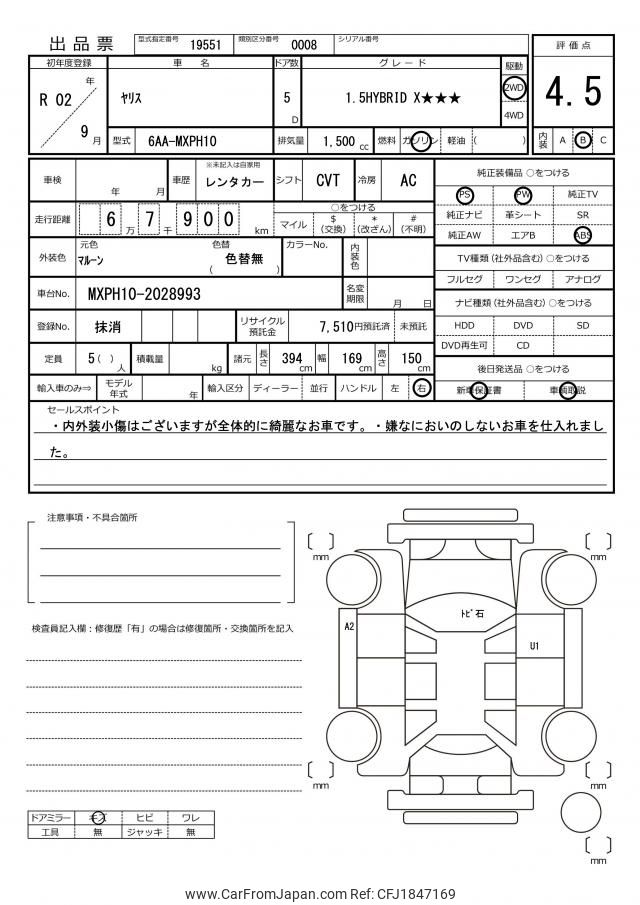 出品票 型式指定番号 19551 類別区分番号 0008 シリアル番号
評価点
4.5
内装 A B C
初年度登録 車名 ドア数 グレード 駆動
R 02 年 9 月
ヤリス 5 D 1.5HYBRID X★★★ 2WD
4WD
型式 6AA-MXPH10 排気量 1,500 cc 燃料 ガソリン 軽油 ( )
車検 年 月 車歴 ※未記入は自家用 レンタカー シフト CVT 冷房 AC
走行距離 6 万 7 千 9 0 0 km
○をつける
マイル $ (交換) * (改ざん) # (不明)
外装色 元色 マルーン 色替 色替無 ( ) カラーNo. 内装色
車台No. MXPH10-2028993 名変期限 月 日
登録No. 抹消 リサイクル預託金 7,510円預託済 未預託
定員 5 ( ) 人 積載量 kg 諸元 長さ 394 cm 幅 169 cm 高さ 150 cm
輸入車のみ⇒ モデル年式 年 輸入区分 ディーラー 並行 ハンドル 左 右
純正装備品 ○をつける
PS PW 純正TV
純正ナビ 革シート SR
純正AW エアB ABS
TV種類 (社外品含む) ○をつける
フルセグ ワンセグ アナログ
ナビ種類 (社外品含む) ○をつける
HDD DVD SD
DVD再生可 CD
後日発送品 ○をつける
新車保証書 車輌取説
セールスポイント
・内外装小傷はございますが全体的に綺麗なお車です。・嫌なにおいのしないお車を仕入れまし
た。
注意事項・不具合箇所
検査員記入欄：修復歴「有」の場合は修復箇所・交換箇所を記入
mm
mm
トビ石
A2
U1
mm
mm
mm
ドアミラー キズ ヒビ ワレ
工具 無 ジャッキ 無
www.CarFromJapan.com Ref: CFJ1847169